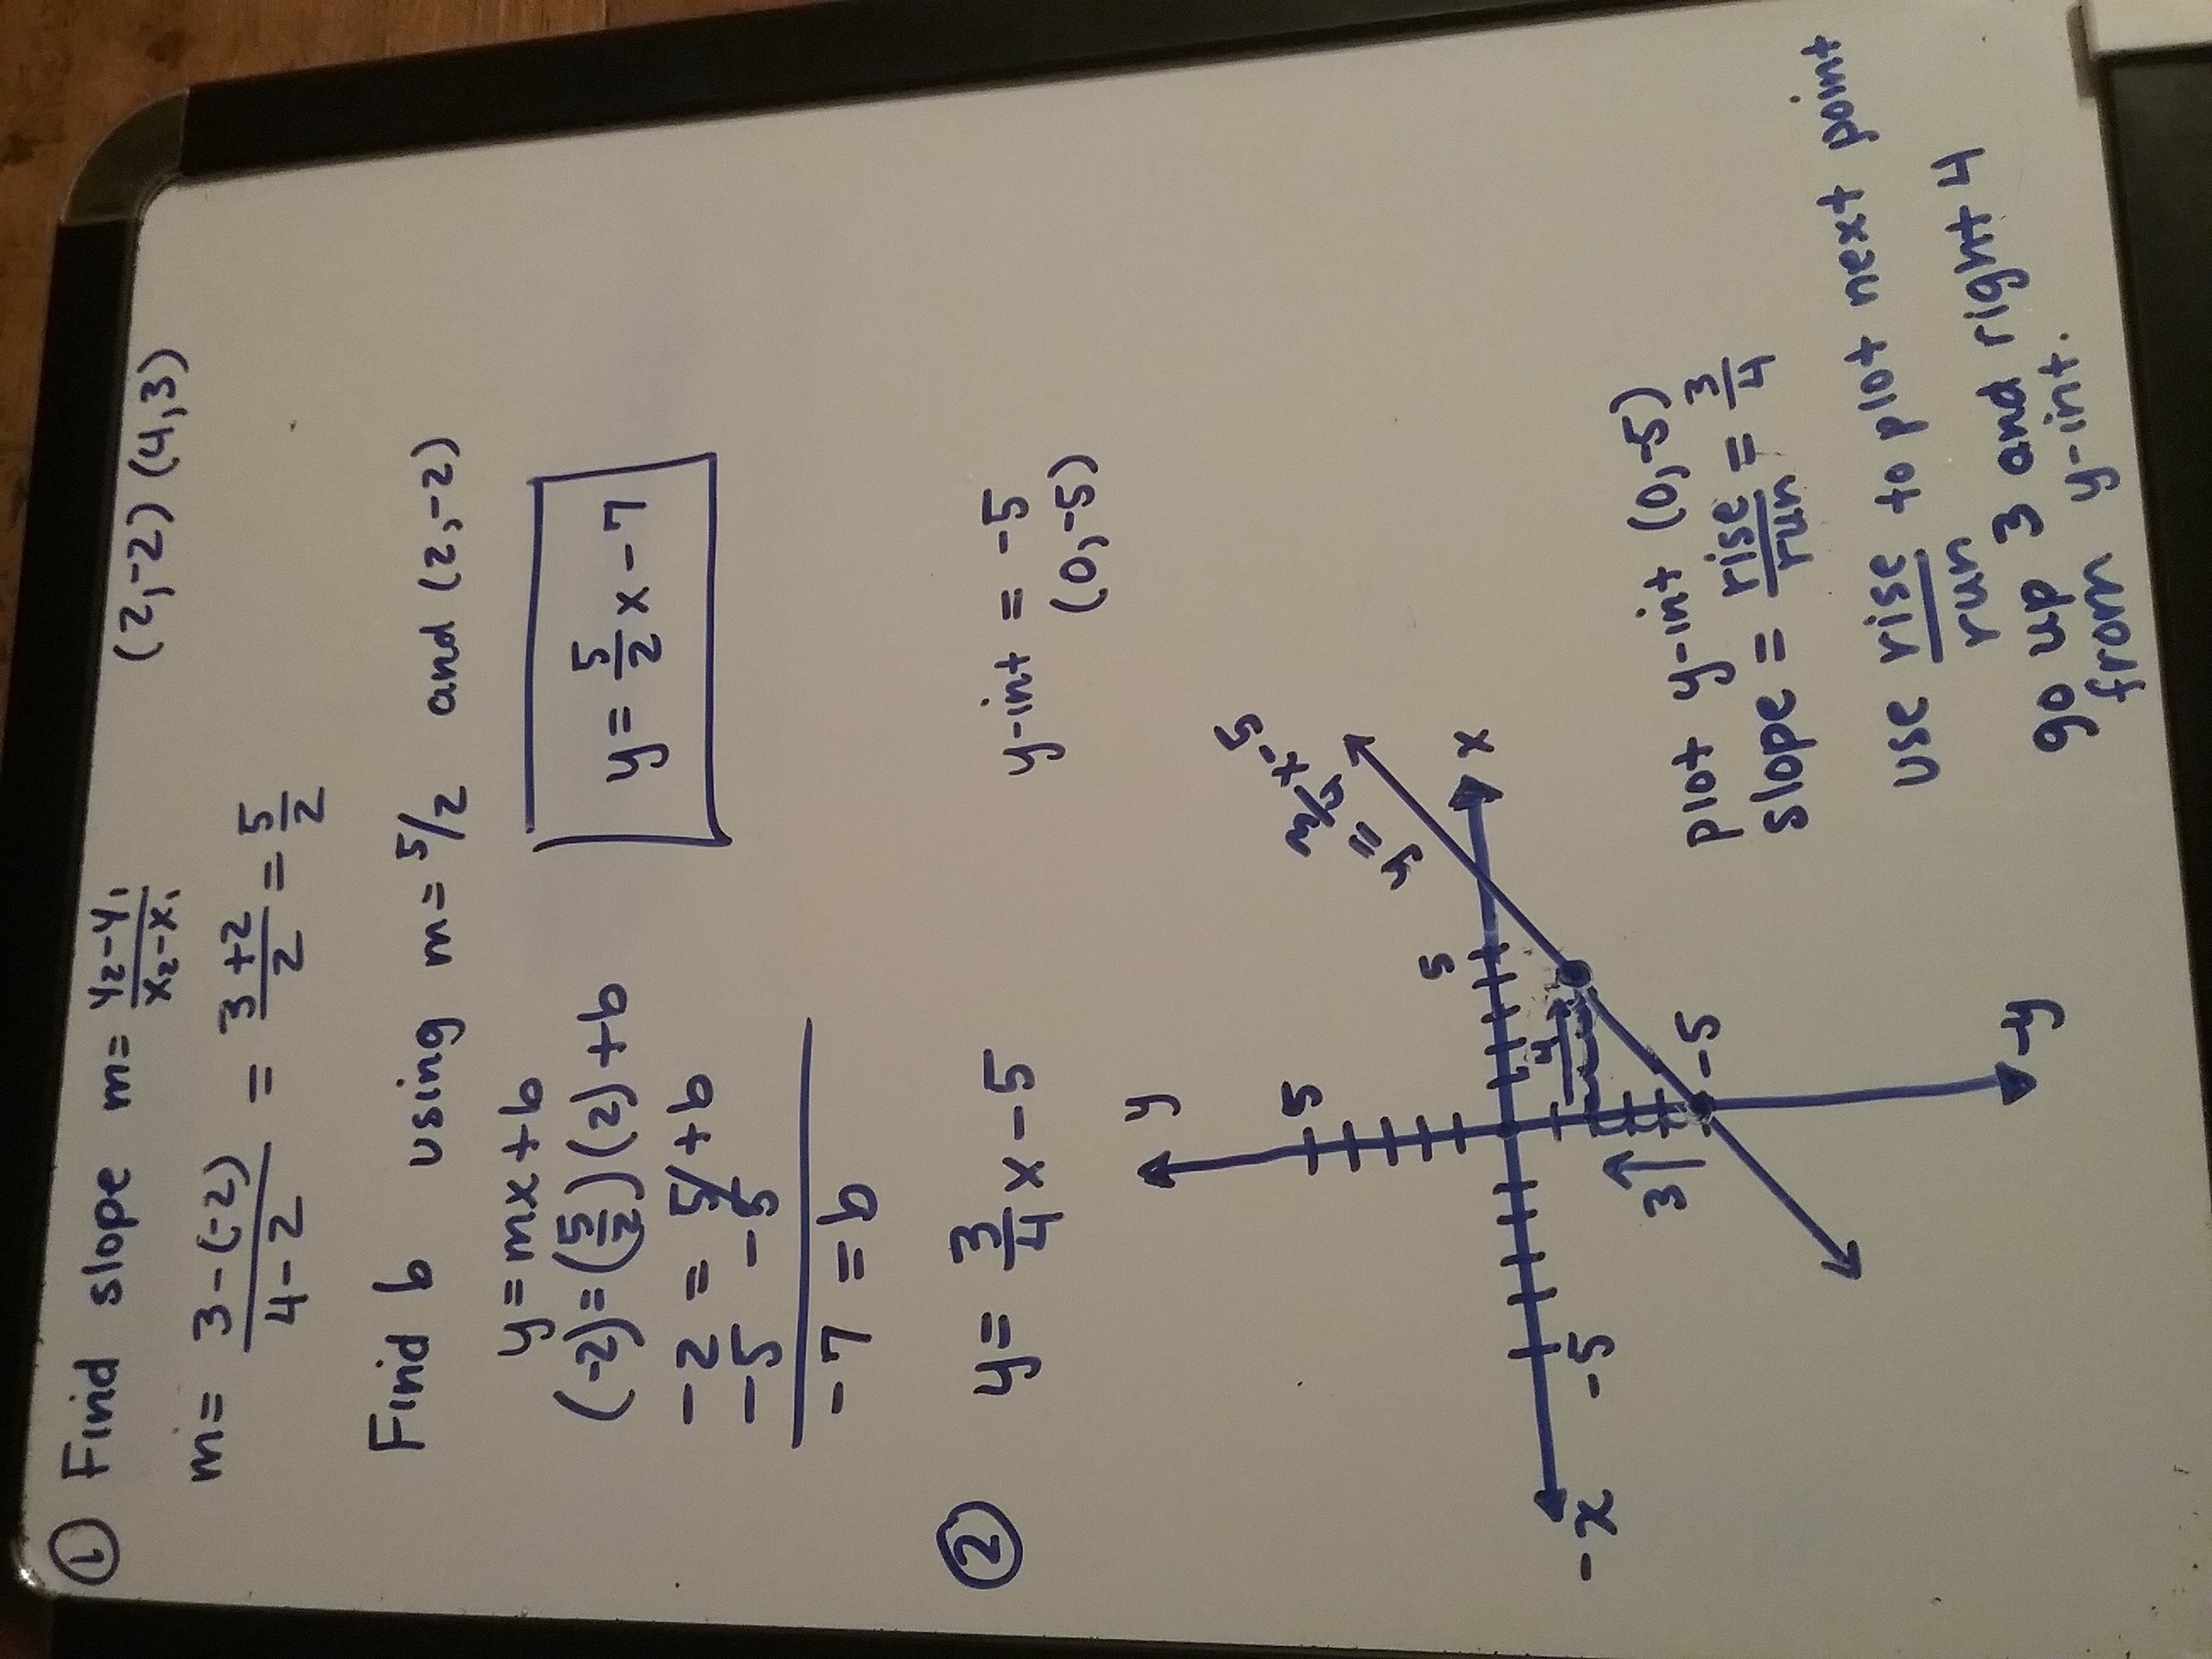 ① Find slope m = y₂-y₁/x₂-x₁ (2,-2) (4,3)
m = 3-(-2)/4-2 = 3+2/2 = 5/2
Find b using m = 5/2 and (2,-2)
y = mx + b
(-2) = (5/2)(2) + b
-2 = 5 + b
-5 -5
-7 = b
y = 5/2 x - 7
② y = 3/4 x - 5
y-int = -5
(0,-5)
y
5
y = 3/4 x - 5
5
x
4
3
-5
-5
-x
-y
plot y-int (0,-5)
slope = rise/run = 3/4
use rise/run to plot next point
go up 3 and right 4
from y-int.